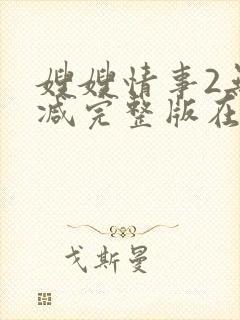 嫂嫂情事2无
减完整版在
戈斯曼